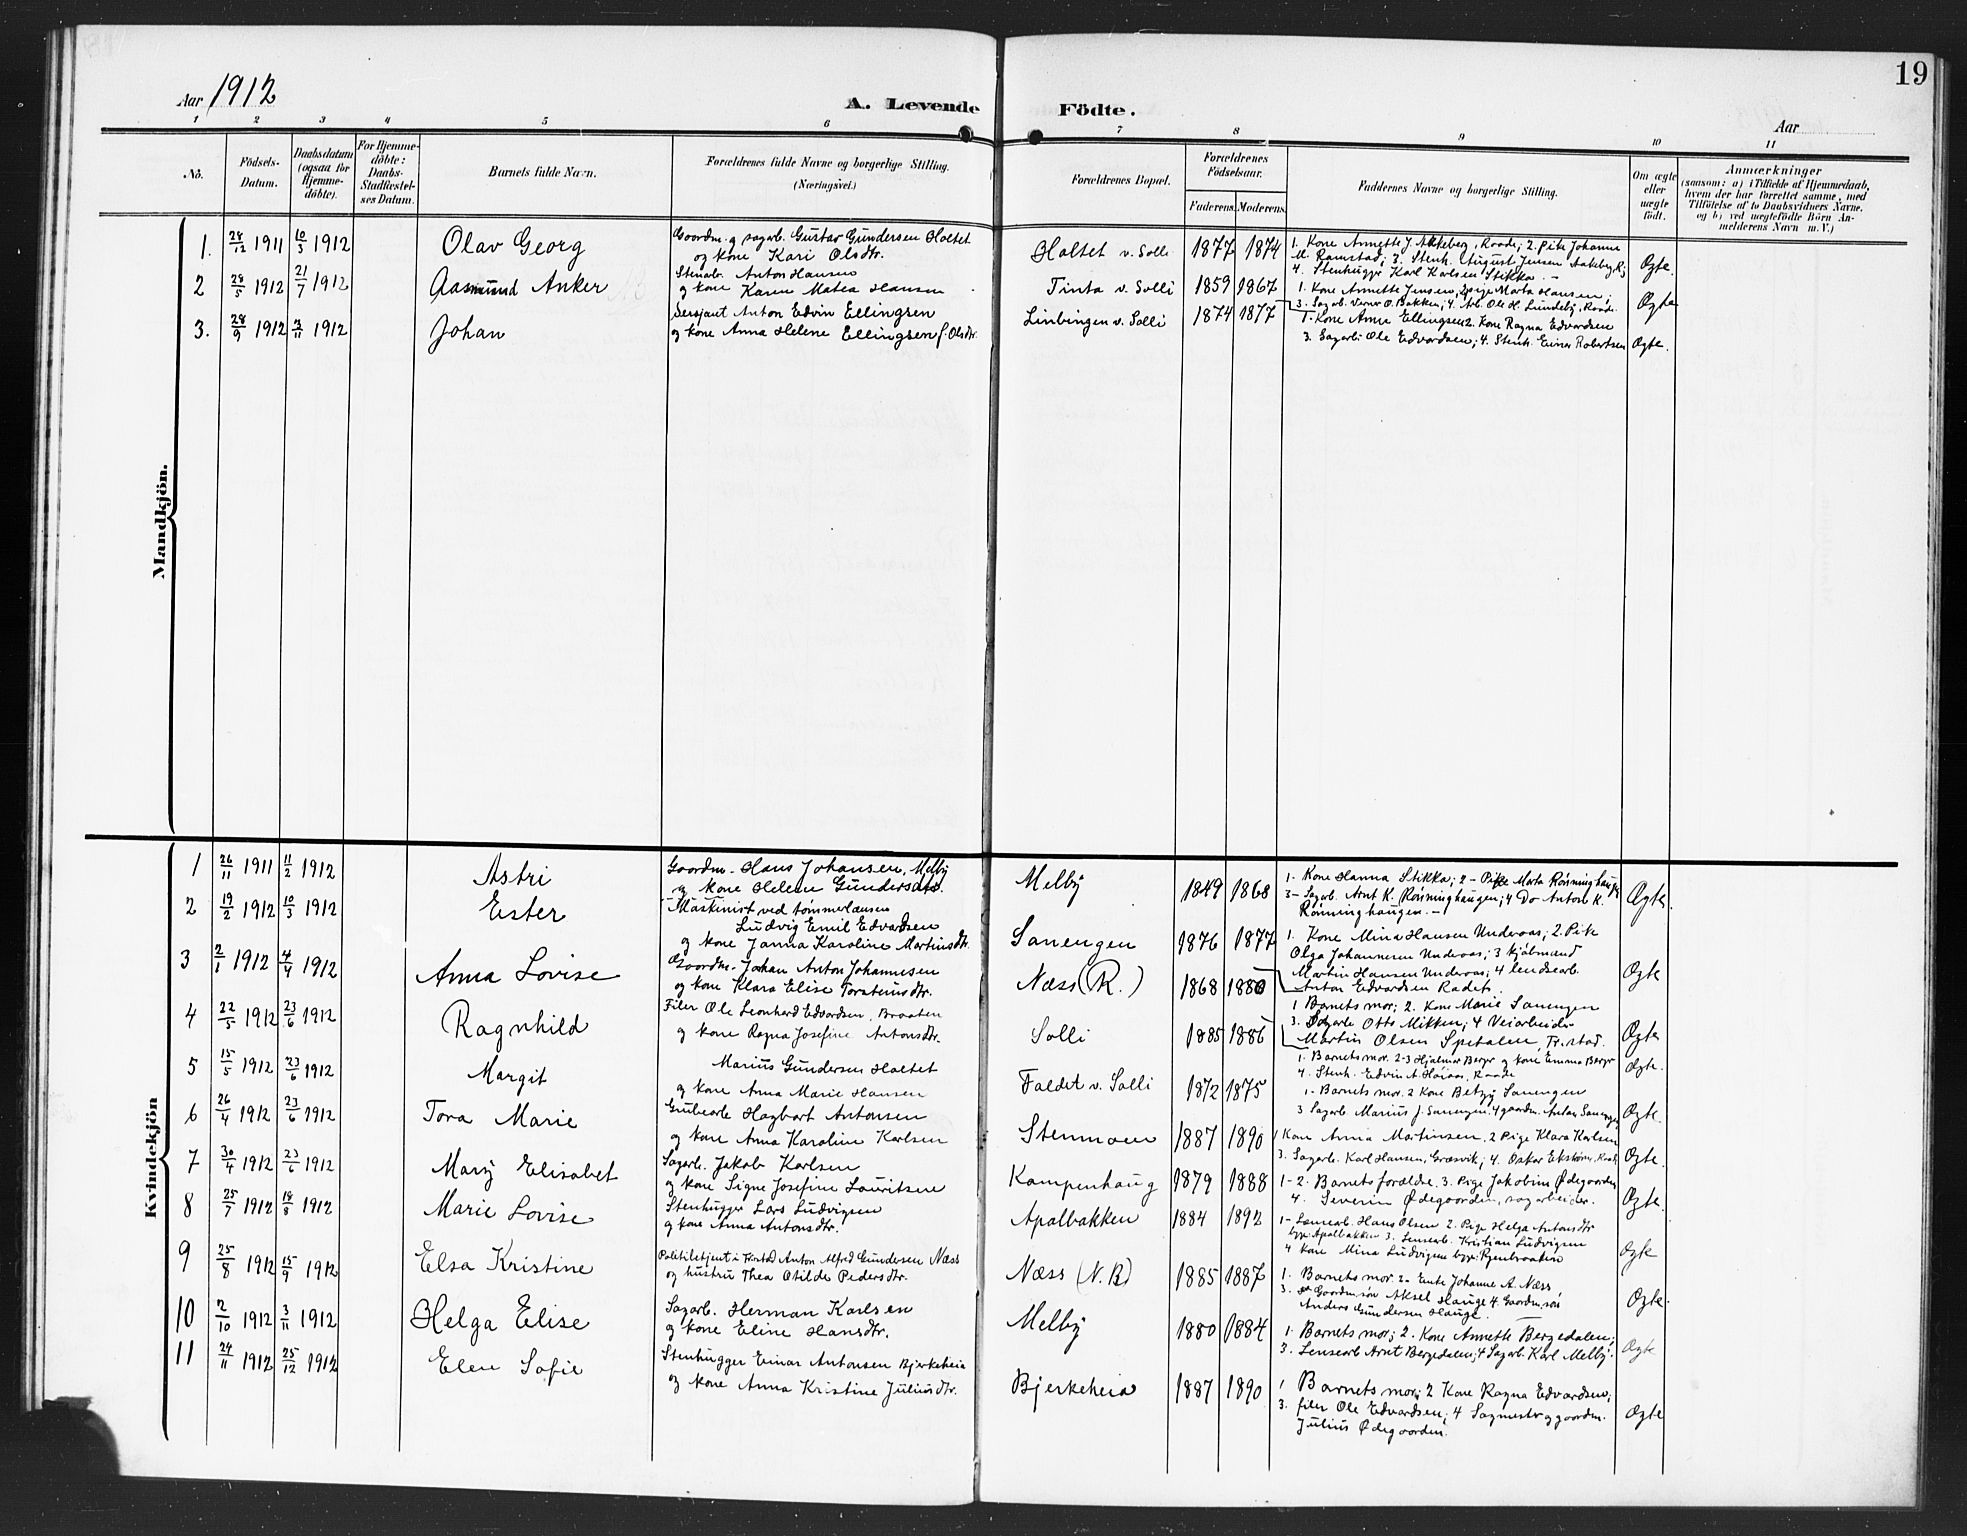 19
Aar 1912
A. Levende Födte.
Aar
1 2 3 4 5 6 7 8 9 10 11
No.
Födsels-Datum.
Daabsdatum (ogsaa for Hjemme-döbte).
For Hjemme-döbte: Daabs-Stadfæstel-ses Datum.
Barnets fulde Navn.
Forældrenes fulde Navne og borgerlige Stilling.
(Næringsvei.)
Forældrenes Bopæl.
Forældrenes Födselsaar.
Faderens. Moderens.
Faddernes Navne og borgerlige Stilling.
Om ægte eller uægte födt.
Anmærkninger
(saasom: a) i Tilfælde af Hjemmedaab, hvem der har forrettet samme, med Tilföielse af to Daabsvidners Navne. og b) ved uægtefödte Börn An-melderens Navn m. V.)
Mandkjön.
1. 28/12 1911 10/3 1912 Olav Georg
Gaardm. og sagarb. Gustav Gundersen Holtet
og kone Kari Olsdtr.
Holtet v. Solli 1877 1874
1. Kone Annette J. Akkeberg, Raade; 2. Pike Johanne
M. Ramstad; 3. Stenh. August Jensen Aakeberg R;
4. Stenhugger Karl Karlsen Stikka. -
Ægte.
2 28/5 1912 21/7 1912 Aasmund Anker
Stenarb. Anton Hansen
og kone Karen Matea Hansen
Tinta v. Solli 1859 1867
1. Kone Annette Jensen, 2 pige Marta Hansen;
3. Sagarb. Verner O. Bakken; 4. Arb. Ole H. Lundeby, Raade.
Ægte
3. 28/9 1912 3/11 1912 Johan
Sersjant Anton Edvin Ellingsen
og kone Anna Helene Ellingsen f. Olsdtr.
Linbingen v. Solli 1874 1877
1. Kone Anne Ellingsen 2. Kone Ragna Edvardsen
3. Sagarb. Ole Edvardsen; 4. Stenh. Einar Robertsen
Ægte.
Kvindekjön
1 26/11 1911 11/2 1912 Astri
Gaardm. Hans Johansen, Melby
og kone Helene Gundersdtr.
Melby 1849 1868
1- Kone Hanna Stikka; 2 - Pike Marta Rönninghaugen
3- Sagarb. Arnt K. Rönninghaugen; 4 Do Anton K.
Rönninghaugen. -
Ægte.
2 19/2 1912 10/3 1912 Ester
Maskinist ved tömmerlænsen
Ludvig Emil Edvardsen
og kone Janna Karoline Martinsdtr.
Sanengen 1876 1877
1. Kone Mina Hansen Underaas; 2. Pik
Olga Johannesen Underaas; 3 kjöbmand
Martin Hansen Underaas; 4 lensearb.
Anton Edvardsen Radets.
Ægte
3 2/1 1912 4/4 1912 Anna Lovise
Gaardm. Johan Anton Johannesen
og kone Klara Elise Torsteinsdtr.
Næss (R.) 1868 1880
1 Barnets mor; 2. Kone Marie Sanengen
3. Sagarb. Otto Mikken; 4 Veiarbeider
Martin Olsen Spetalen, Fr.stad.
Ægte
4 22/5 1912 23/6 1912 Ragnhild
Filer Ole Leonhard Edvardsen, Braaten
og kone Ragna Josefine Antonsdtr.
Solli 1885 1886
1. Barnets mor. 2-3 Hjalmar Berger og kone Emma Berger
4. Stenh. Edvin A. Höiaas, Raade
Ægte.
5 15/5 1912 23/6 1912 Margit
Marius Gundersen Holtet
og kone Anna Marie Hansen
Faldet v. Solli 1872 1875
1. Barnets mor. 2 Kone Betzy Sanengen
3 Sagarb. Marius J. Sanengen. 4 gaardm. Anton Sanengen
Ægte.
6 26/4 1912 23/6 1912 Tora Marie
Grubearb. Hagbart Antonsen
og kone Anna Karoline Karlsen
Stenmoen 1887 1890
1 Kone Anna Martinsen. 2 Pige Klara Karlsen
3. Sagarb. Karl Hansen, Græsvik; 4. Oskar Ekström, Raade
Ægte.
7 30/4 1912 23/6 1912 Mary Elisabet
Sagarb. Jakob Karlsen
og kone Signe Josefine Lauritsen
Kampenhaug 1879 1888
1-2. Barnets forældre. 3. Pige Jakobine Ødegaarden
4. Severin Ødegaarden, sagarbeider.
Ægte.
8 25/7 1912 18/8 1912 Marie Lovise
Stenhugger Lars Ludvigsen
og kone Anna Antonsdtr.
Apalbakken 1884 1892
1- Lensearb. Hans Olsen 2. Pige Helga Antonsdtr
begge Apalbakken 3. Lensearb. Kristian Ludvigsen
4 kone Mina Ludvigsen begge
Ægte
9 25/8 1912 15/9 1912 Elsa Kristine
Politibetjent i Fr.stad Anton Alfred Gundersen Næss
og hustru Thea Otilde Pedersdtr.
Næss (N.B) 1885 1887
1. Barnets mor. 2- Enke Johanne A. Næss,
3. Gaardm.sön Aksel Hauge 4. Gaardm.sön
Anders Gundersen Hauge.
Ægte.
10 2/10 1912 3/11 1912 Helga Elise
Sagarb. Herman Karlsen
og kone Eline Hansdtr.
Melby 1880 1884
1. Barnets mor; 2. Kone Annette Bergedalen;
3. Lensearb Arnt Bergedalen; 4 Sagarb. Karl Melby.
Ægte
11 24/11 1912 25/12 1912 Elen Sofie
Stenhugger Einar Antonsen Bjerkeheia
og kone Anna Kristine Juliusdtr.
Bjerkeheia 1887 1890
1 Barnets mor; 2 Kone Ragna Edvardsen;
3. filer Ole Edvardsen; 4 Sagmester og gaardm.
Julius Ødegaarden.
Ægte